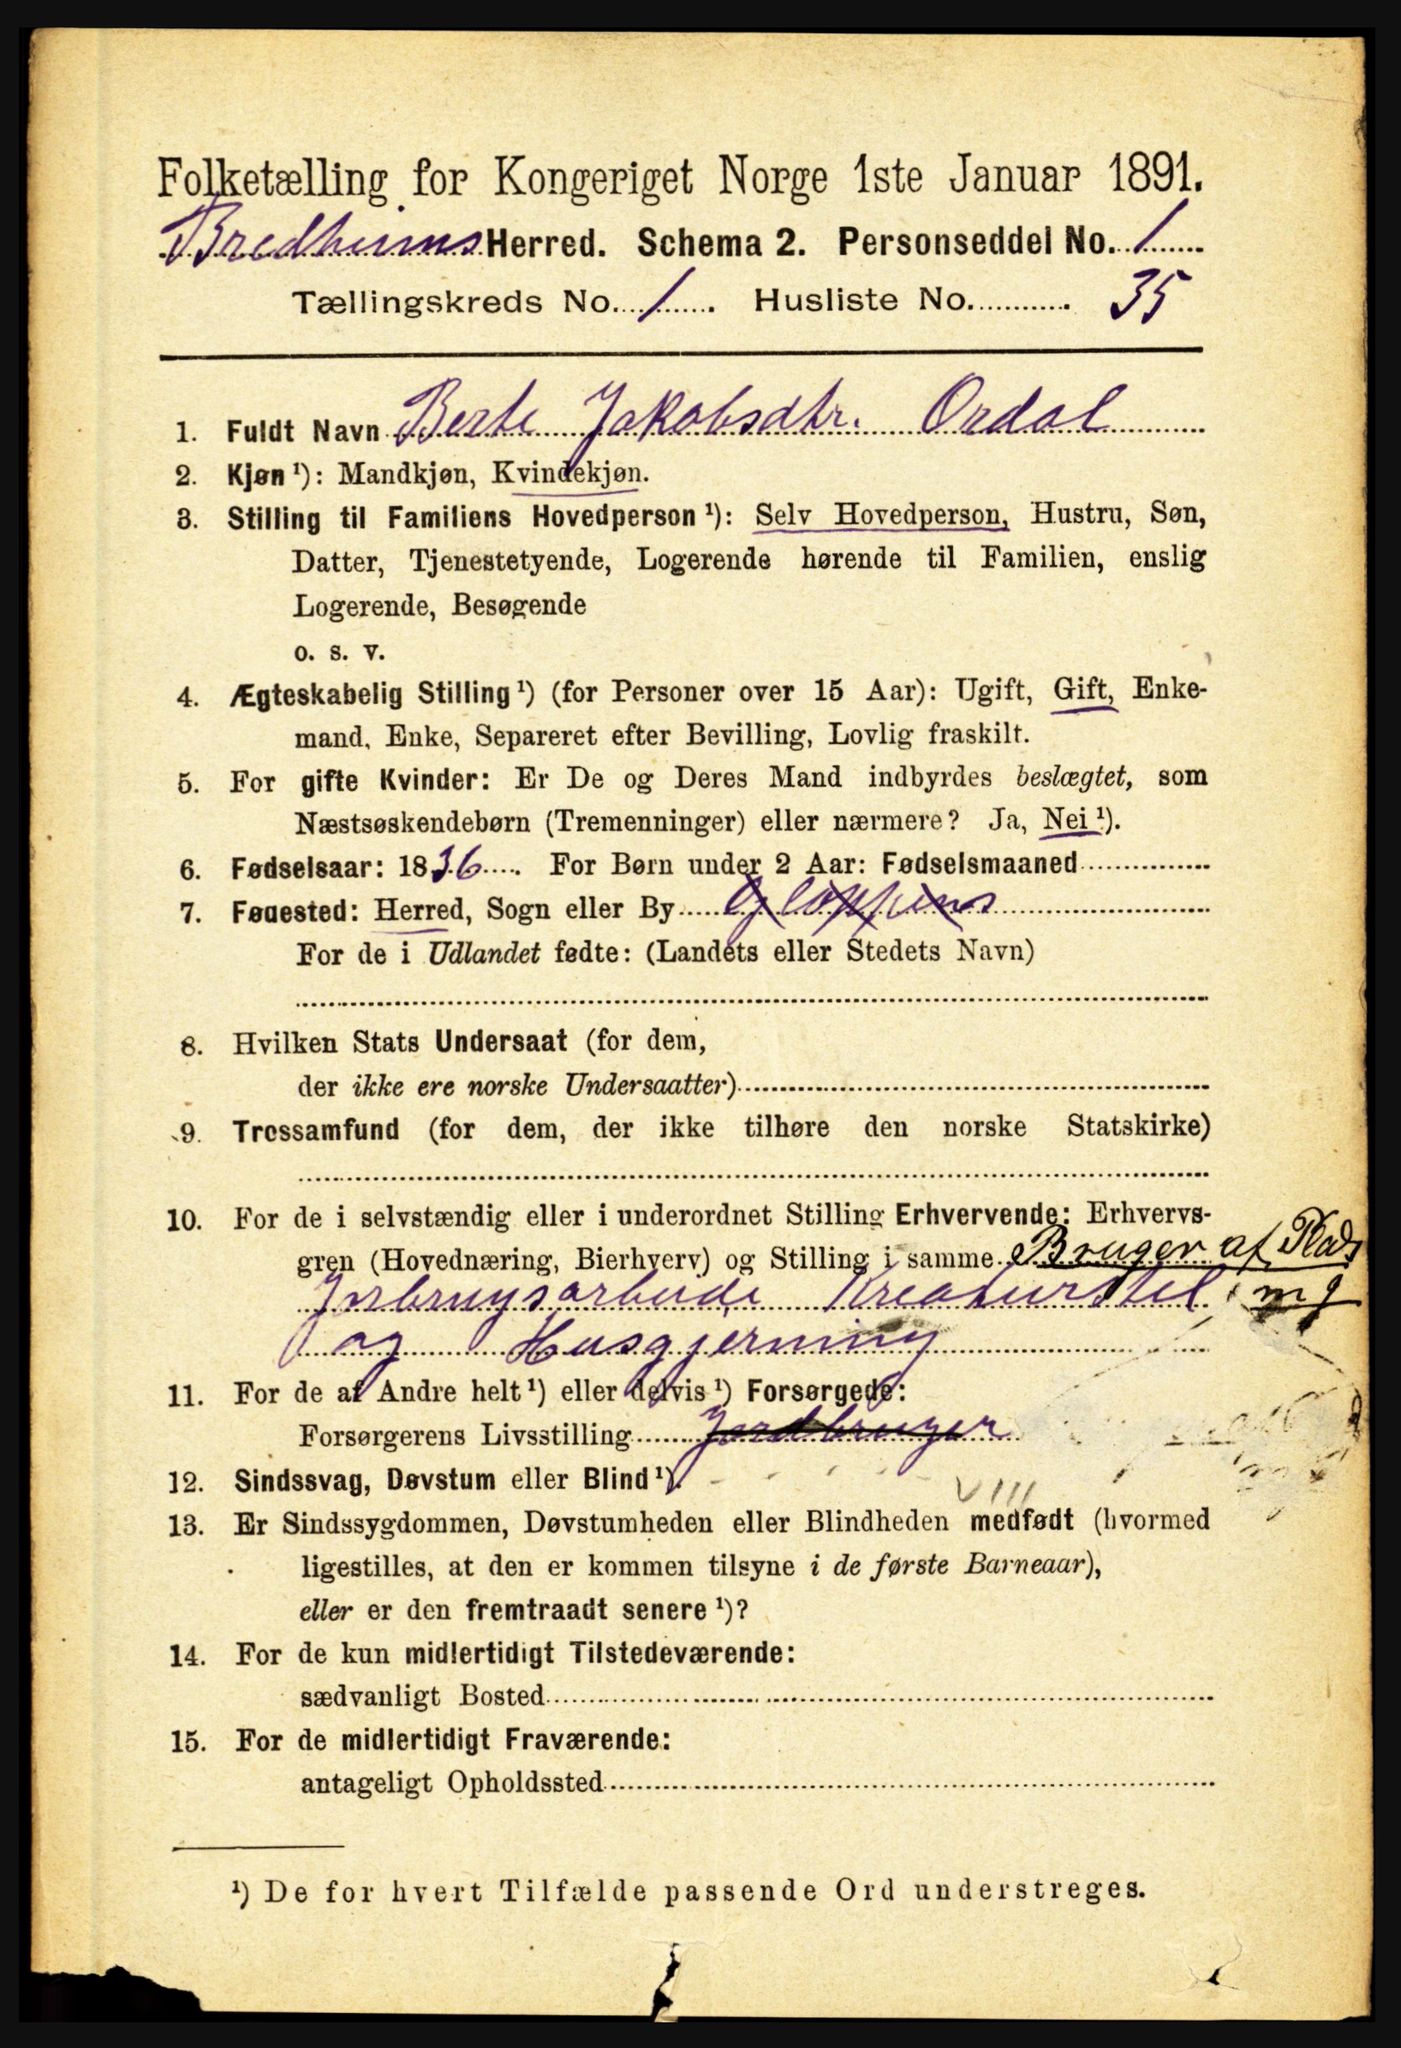 Folketælling for Kongeriget Norge 1ste Januar 1891.
Bredheims Herred. Schema 2. Personseddel No. 1
Tællingskreds No. 1. Husliste No. 35
1. Fuldt Navn Berte Jakobsdtr. Ordal
2. Kjøn ¹): Mandkjøn, Kvindekjøn.
3. Stilling til Familiens Hovedperson ¹): Selv Hovedperson, Hustru, Søn,
Datter, Tjenestetyende, Logerende hørende til Familien, enslig
Logerende, Besøgende
o. s. v.
4. Ægteskabelig Stilling ¹) (for Personer over 15 Aar): Ugift, Gift, Enke-
mand, Enke, Separeret efter Bevilling, Lovlig fraskilt.
5. For gifte Kvinder: Er De og Deres Mand indbyrdes beslægtet, som
Næstsøskendebørn (Tremenninger) eller nærmere? Ja, Nei ¹).
6. Fødselsaar: 1836. For Børn under 2 Aar: Fødselsmaaned
7. Fødested: Herred, Sogn eller By Gloppens
For de i Udlandet fødte: (Landets eller Stedets Navn)
8. Hvilken Stats Undersaat (for dem,
der ikke ere norske Undersaatter)
9. Trossamfund (for dem, der ikke tilhøre den norske Statskirke)
10. For de i selvstændig eller i underordnet Stilling Erhvervende: Erhvervs-
gren (Hovednæring, Bierhverv) og Stilling i samme Bruger af Plads
Jorbrugsarbeide Kreaturstel m J
og Husgjerning
11. For de af Andre helt ¹) eller delvis ¹) Forsørgede:
Forsørgerens Livsstilling Jordbruger
12. Sindssvag, Døvstum eller Blind ¹).
VIII
13. Er Sindssygdommen, Døvstumheden eller Blindheden medfødt (hvormed
ligestilles, at den er kommen tilsyne i de første Barneaar),
eller er den fremtraadt senere ¹)?
14. For de kun midlertidigt Tilstedeværende:
sædvanligt Bosted
15. For de midlertidigt Fraværende:
antageligt Opholdssted
¹) De for hvert Tilfælde passende Ord understreges.